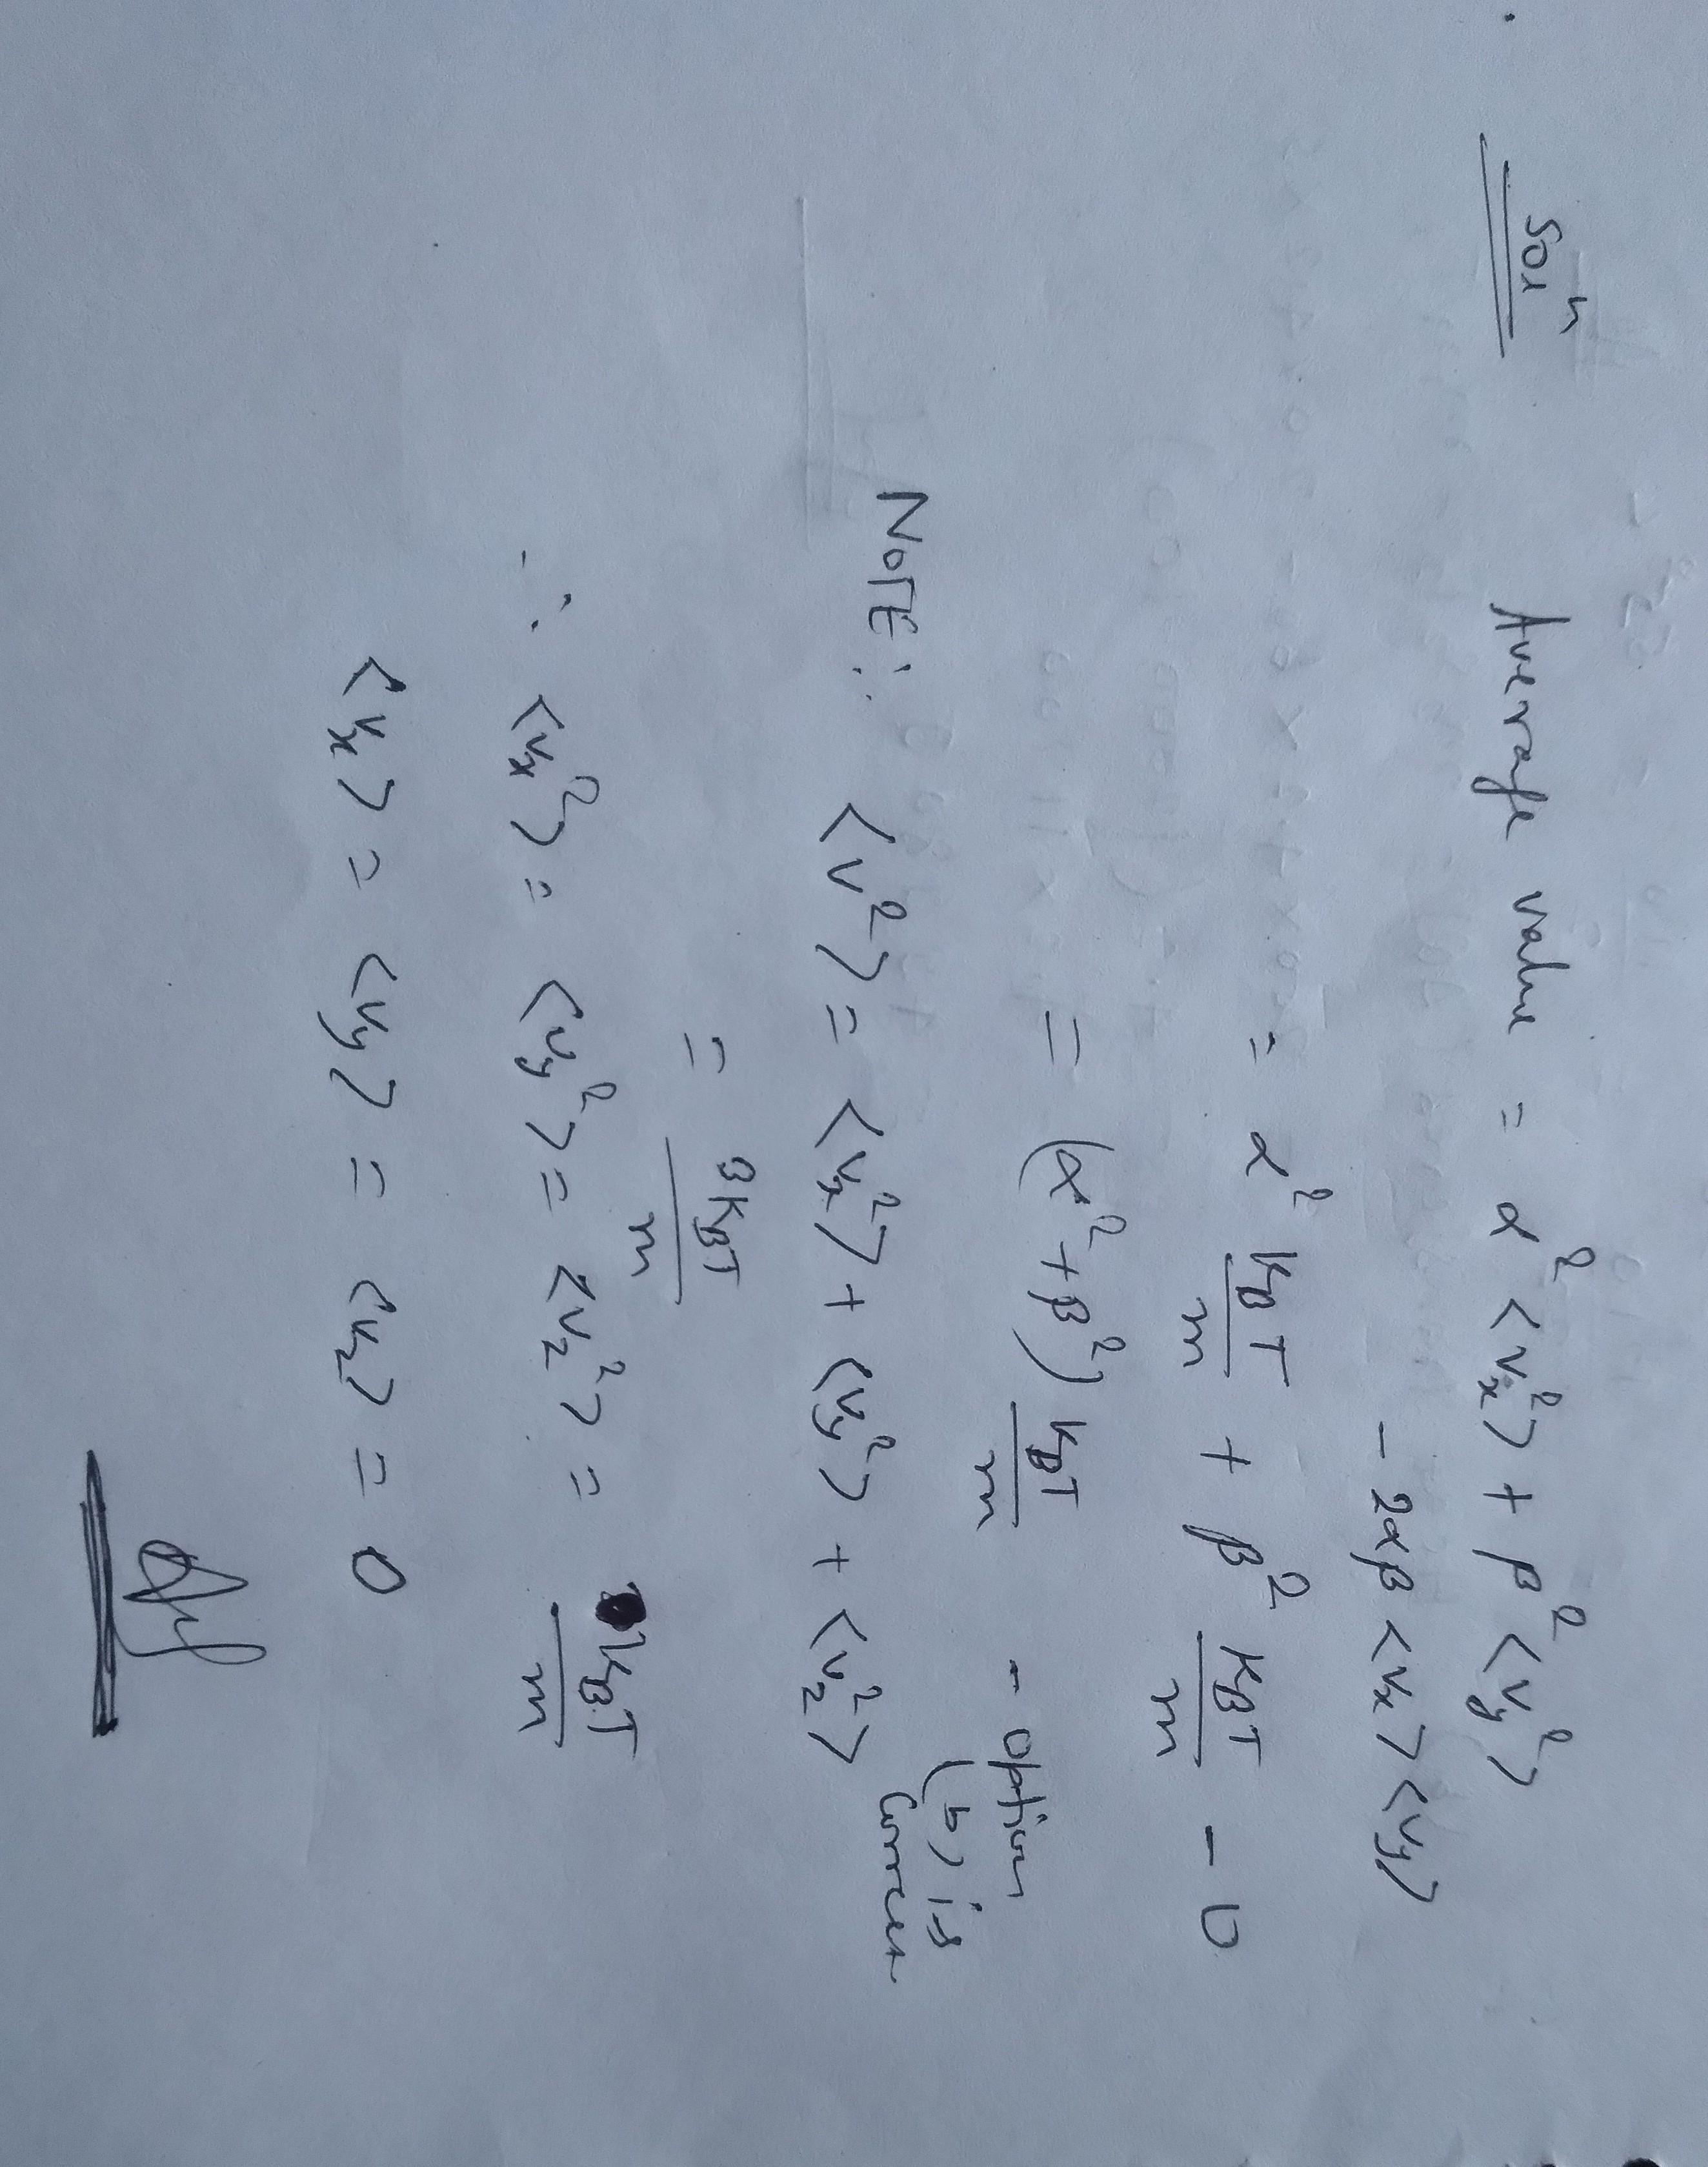 Solⁿ
Average value = α² <vₓ²> + β² <v_y²>
- 2αβ <vₓ> <v_y>
= α² K_BT/m + β² K_BT/m - 0
= (α² + β²) K_BT/m - option
(b) is
Correct
NOTE: <v²> = <vₓ²> + <v_y²> + <v_z²>
= 3K_BT/m
∴ <vₓ²> = <v_y²> = <v_z²> = K_BT/m
<vₓ> = <v_y> = <v_z> = 0